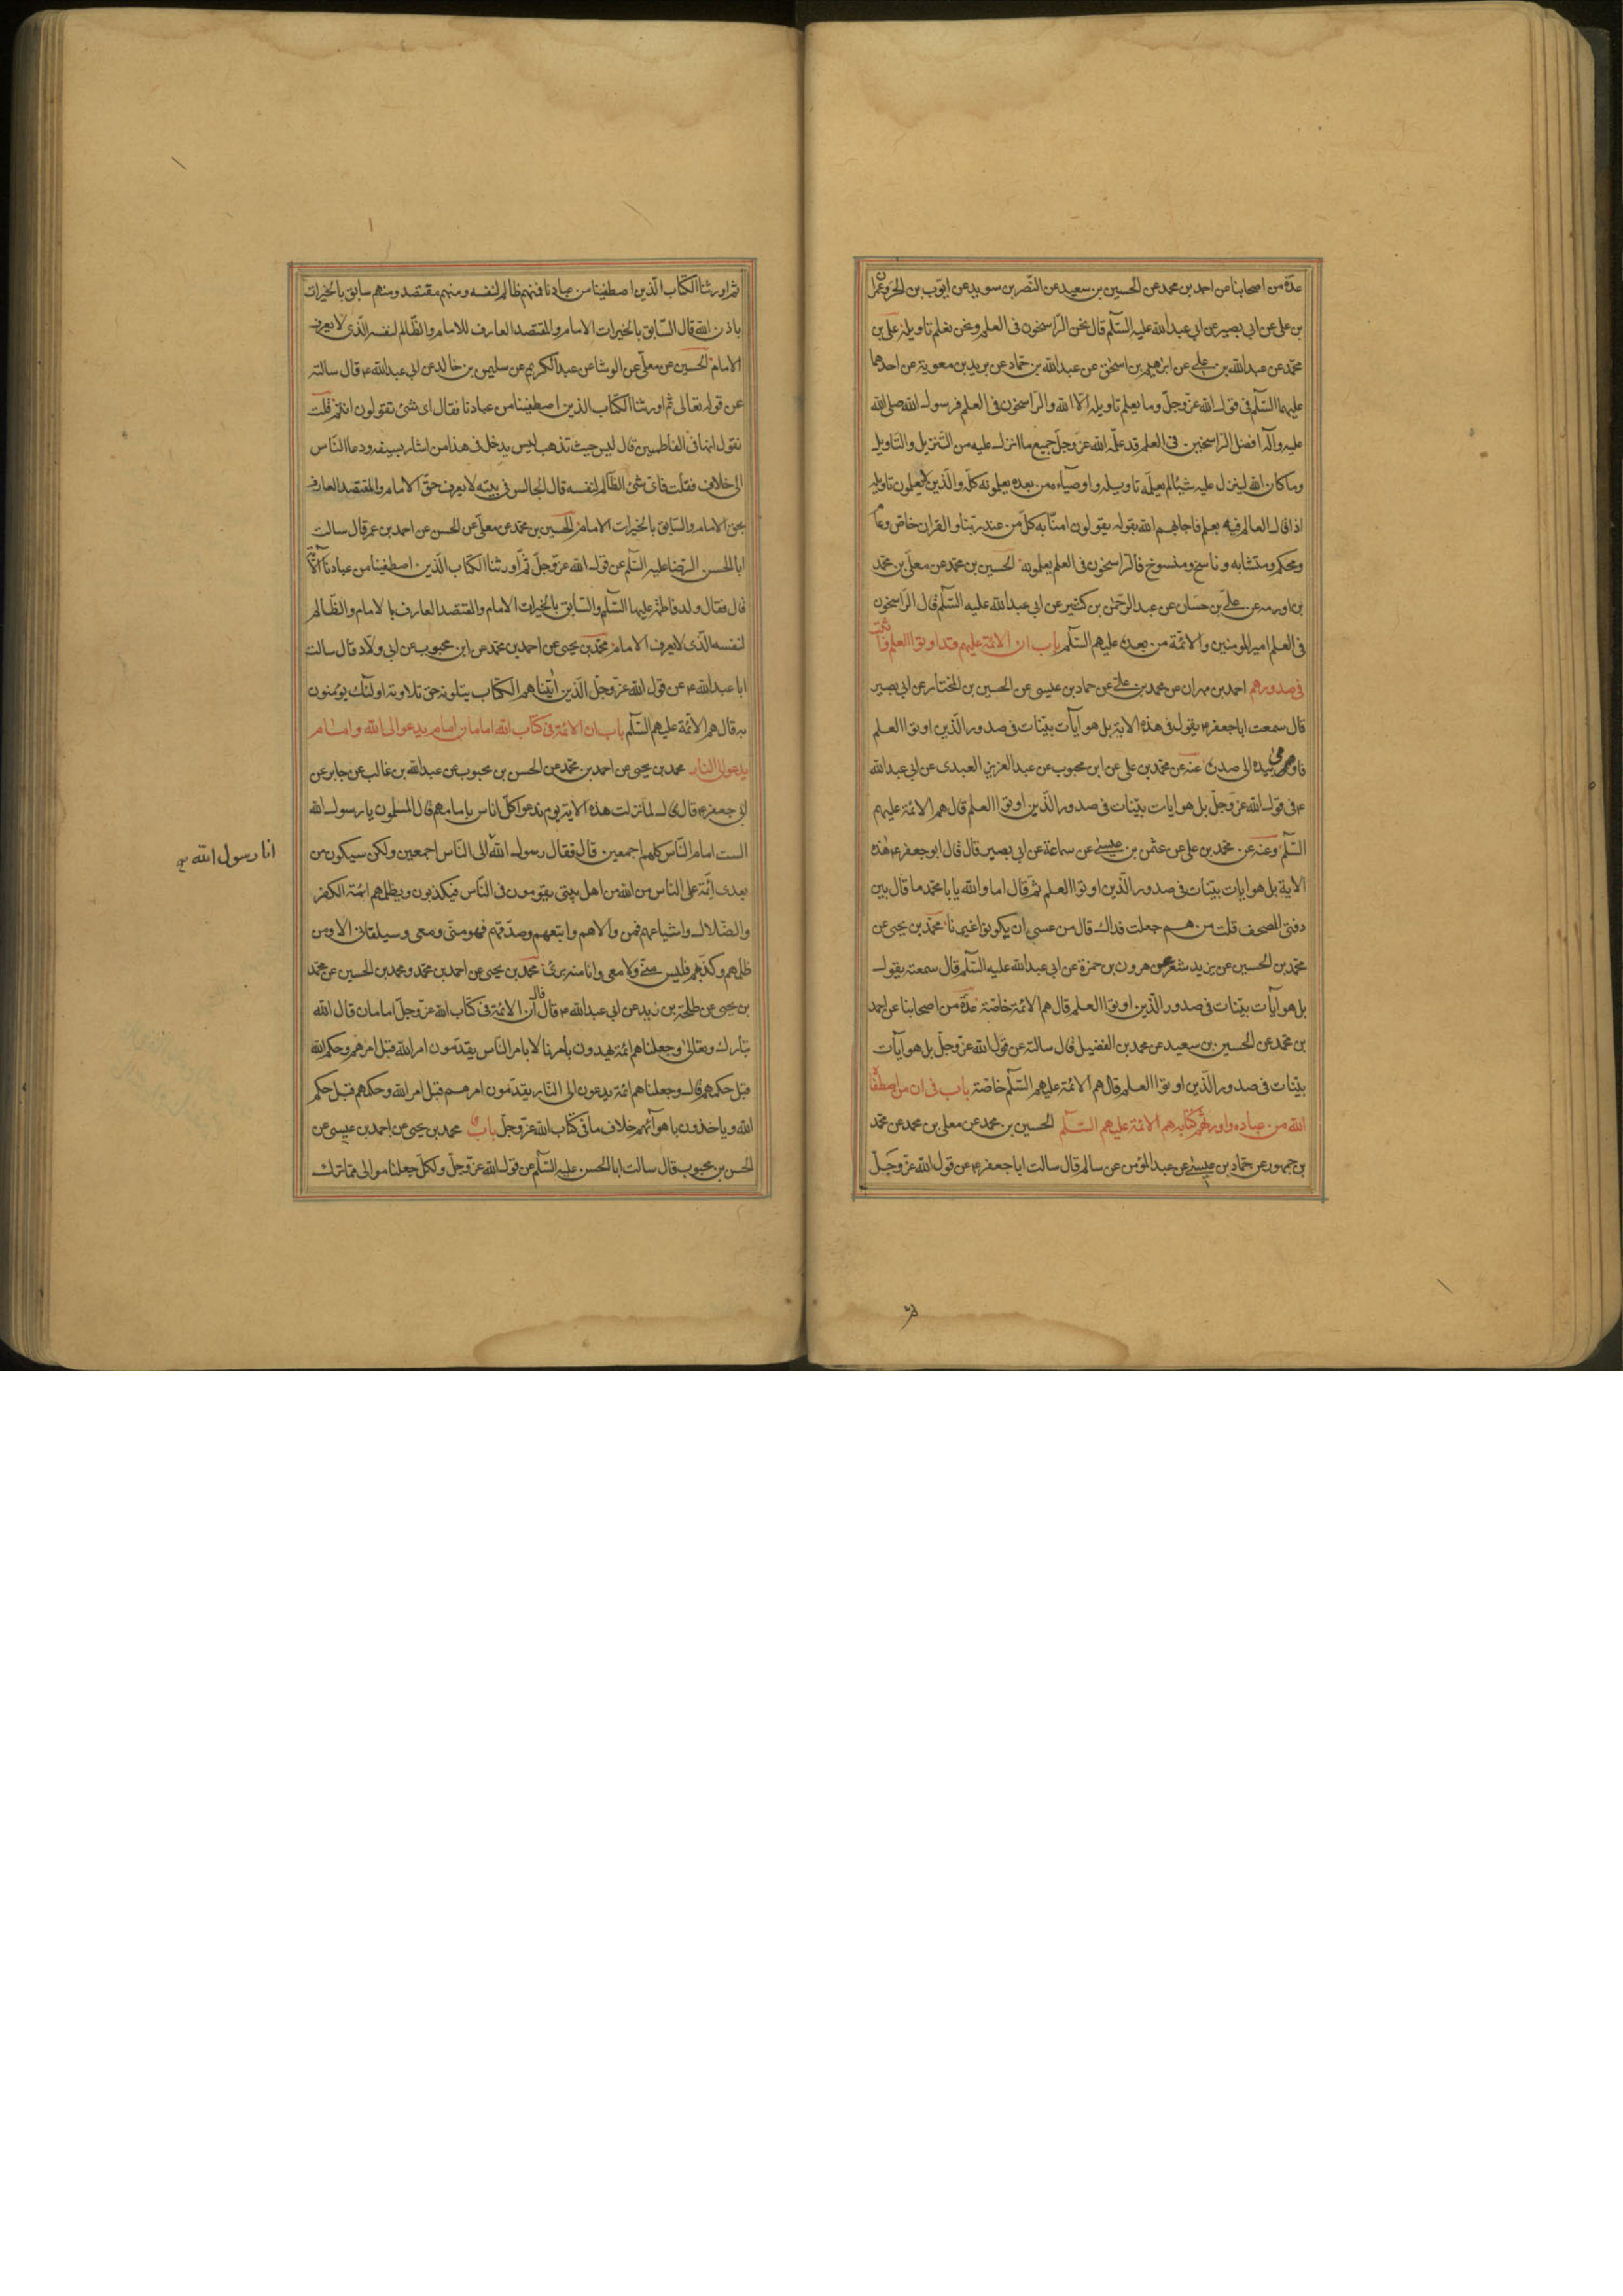 عدّة من اصحابنا عن احمد بن محمد عن الحسين بن سعيد عن النضر بن سويد عن ايوّب بن الحرّ وعمران
بن على عن ابى بصير عن ابى عبدالله عليه السّلم قال نحن الرّاسخون فى العلم ونحن نعلم تاويله على بن
محمّد عن عبدالله بن على عن ابرهيم بن اسحق عن عبدالله بن حمّاد عن بريد بن معوية عن احدهما
عليهما السّلم فى قول الله عزّ وجلّ وما يعلم تاويله الا الله والراسخون فى العلم فرسول الله صلى الله
عليه وآله افضل الرّاسخين فى العلم قد علّمه الله عزّ وجلّ جميع ما انزل عليه من التّنزيل والتّاويل
وما كان الله لينزل عليه شيئا لم يعلّمه تاويله واوصيآءه من بعده يعلمونه كلّه والّذين لا يعلمون تاويله
اذا قال العالم فيه بعلم فاجابهم الله بقوله يقولون امنّا به كلّ من عند ربّنا والقران خاصّ وعامّ
ومحكم ومتشابه وناسخ ومنسوخ فالرّاسخون فى العلم يعلمونه الحسين بن محمد عن معلّى بن محمّد
بن اورمه عن علىّ بن حسّان عن عبدالرّحمن بن كثير عن ابى عبدالله عليه السّلم قال الرّاسخون
فى العلم امير المومنين والائمّة من بعده عليهم السّلم باب ان الائمّة عليهم قد اوتوا العلم واثبت
فى صدورهم احمد بن مهران عن محمد بن علىّ عن حماد بن عيسى عن الحسين بن المختار عن ابى بصير
قال سمعت ابا جعفر ع يقول فى هذه الاية بل هو ايآت بيّنات فى صدور الّذين اوتوا العلم
فاومى بيده الى صدره عنه عن محمّد بن على عن ابن محبوب عن عبدالعزيز العبدى عن ابى عبدالله
ع فى قول الله عزّ وجلّ بل هو ايات بيّنات فى صدور الّذين اوتوا العلم قال هم الائمة عليهم
السّلم وعنه عن محمّد بن على عن عثمن بن عيسى عن سماعة عن ابى بصير قال قال ابو جعفر ع هذه
الاية بل هو ايات بيّنات فى صدور الّذين اوتوا العلم ثمّ قال اما والله يا با محمّد ما قال بين
دفتى المصحف قلت من هم جعلت فداك قال من عسى ان يكونوا غيرنا محمّد بن يحيى عن
محمّد بن الحسين عن يزيد شغر عن هرون بن حمزة عن ابى عبدالله عليه السّلم قال سمعته يقول
بل هو ايآت بيّنات فى صدور الّذين اوتوا العلم قال هم الائمة خاصّة عدّة من اصحابنا عن احمد
بن محمّد عن الحسين بن سعيد عن محمد بن الفضيل قال سالته عن قول الله عزّ وجلّ بل هو ايآت
بيّنات فى صدور الّذين اوتوا العلم قال هم الائمّة عليهم السّلم خاصّة باب فى ان من اصطفاه
الله من عباده واورثهم كتابه هم الائمّة عليهم السّلم الحسين بن محمد عن معلى بن محمد عن محمّد
بن جمهور عن حمّاد بن عيسى عن عبدالمؤمن عن سالم قال سالت ابا جعفر ع عن قول الله عزّ وجلّ
ثم اورثنا الكتاب الّذين اصطفينا من عبادنا فمنهم ظالم لنفسه ومنهم مقتصد ومنهم سابق بالخيرات
باذن الله قال السّابق بالخيرات الامام والمقتصد العارف للامام والظّالم لنفسه الّذى لا يعرف
الامام الحسين عن معلّى عن الوشا عن عبدالكريم عن سليمن بن خالد عن ابى عبدالله ع قال سالته
عن قوله تعالى ثم اورثنا الكتاب الذين اصطفينا من عبادنا فقال اى شئ تقولون انتم قلت
نقول انها فى الفاطميين قال ليس حيث تذهب ليس يدخل فى هذا من اشار بسيفه ودعا النّاس
الى خلاف فقلت فاىّ شئ الظّالم لنفسه قال الجالس فى بيته لا يعرف حقّ الامام والمقتصد العارف
بحق الامام والسّابق بالخيرات الامام الحسين بن محمّد عن معلّى عن الحسن عن احمد بن عمر قال سالت
ابا الحسن الرّضا عليه السّلم عن قول الله عزّ وجلّ ثمّ اورثنا الكتاب الّذين اصطفينا من عبادنا الآية
قال فقال ولد فاطمة عليها السّلم والسّابق بالخيرات الامام والمقتصد العارف بالامام والظّالم
لنفسه الّذى لا يعرف الامام محمّد بن يحيى عن احمد بن محمّد عن ابن محبوب عن ابى ولّاد قال سالت
ابا عبدالله ع عن قول الله عزّ وجلّ الّذين اتيناهم الكتاب يتلونه حق تلاوته اولئك يؤمنون
به قال هم الائمّة عليهم السّلم باب ان الائمّة فى كتاب الله امامان امام يدعوا الى الله وامام
يدعوا الى النار محمد بن يحيى عن احمد بن محمّد عن الحسن بن محبوب عن عبدالله بن غالب عن جابر عن
ابى جعفر ع قال قال لما نزلت هذه الاية يوم ندعوا كلّ اناس بامامهم قال المسلمون يا رسول الله
الست امام النّاس كلهم اجمعين قال فقال رسول الله الى النّاس اجمعين ولكن سيكون من
بعدى ائمّة على الناس من الله من اهل بيتى يقومون فى النّاس فيكذبون ويظلمهم ائمّة الكفر
والضّلال واشياعهم فمن والاهم واتبعهم وصدّقهم فهو منّى ومعى وسيلقانى الا ومن
ظلمهم وكذّبهم فليس منّى ولا معى وانا منه برئ محمد بن يحيى عن احمد بن محمّد ومحمد بن الحسين عن محمّد
بن يحيى عن طلحة بن زيد عن ابى عبدالله ع قال قال ان الائمّة فى كتاب الله عزّ وجلّ امامان قال الله
تبارك وتعالى وجعلناهم ائمّة يهدون بامرنا لا بامر الناس يقدّمون امر الله قبل امرهم وحكم الله
قبل حكمهم قال وجعلناهم ائمّة يدعون الى النّار يقدّمون امرهم قبل امر الله وحكمهم قبل حكم
الله وياخذون باهوآئهم خلاف ما فى كتاب الله عزّ وجلّ باب محمد بن يحيى عن احمد بن عيسى عن
الحسن بن محبوب قال سالت ابا الحسن عليه السّلم عن قول الله عزّ وجلّ ولكلّ جعلنا موالى ممّا ترك
انا رسول الله